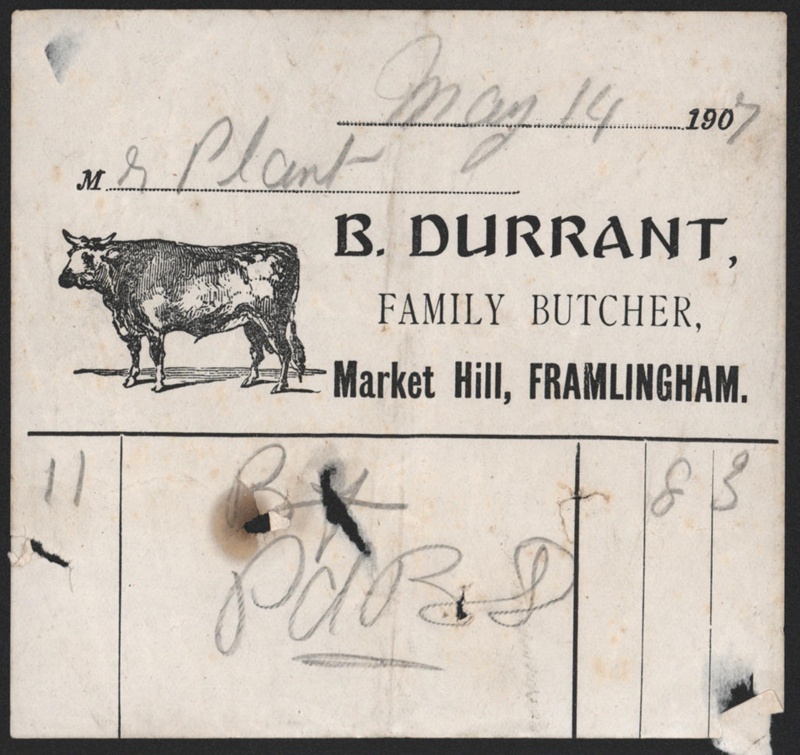 May 14 1907
Mr Plant
B. DURRANT,
FAMILY BUTCHER,
Market Hill, FRAMLINGHAM.
11 8 3
Pd B D